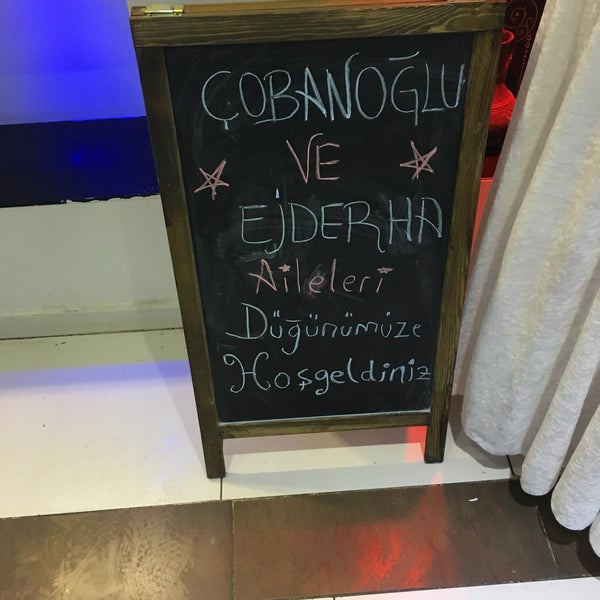 ÇOBANOĞLU
VE
EJDERHA
Aileleri
Düğünümüze
Hoşgeldiniz